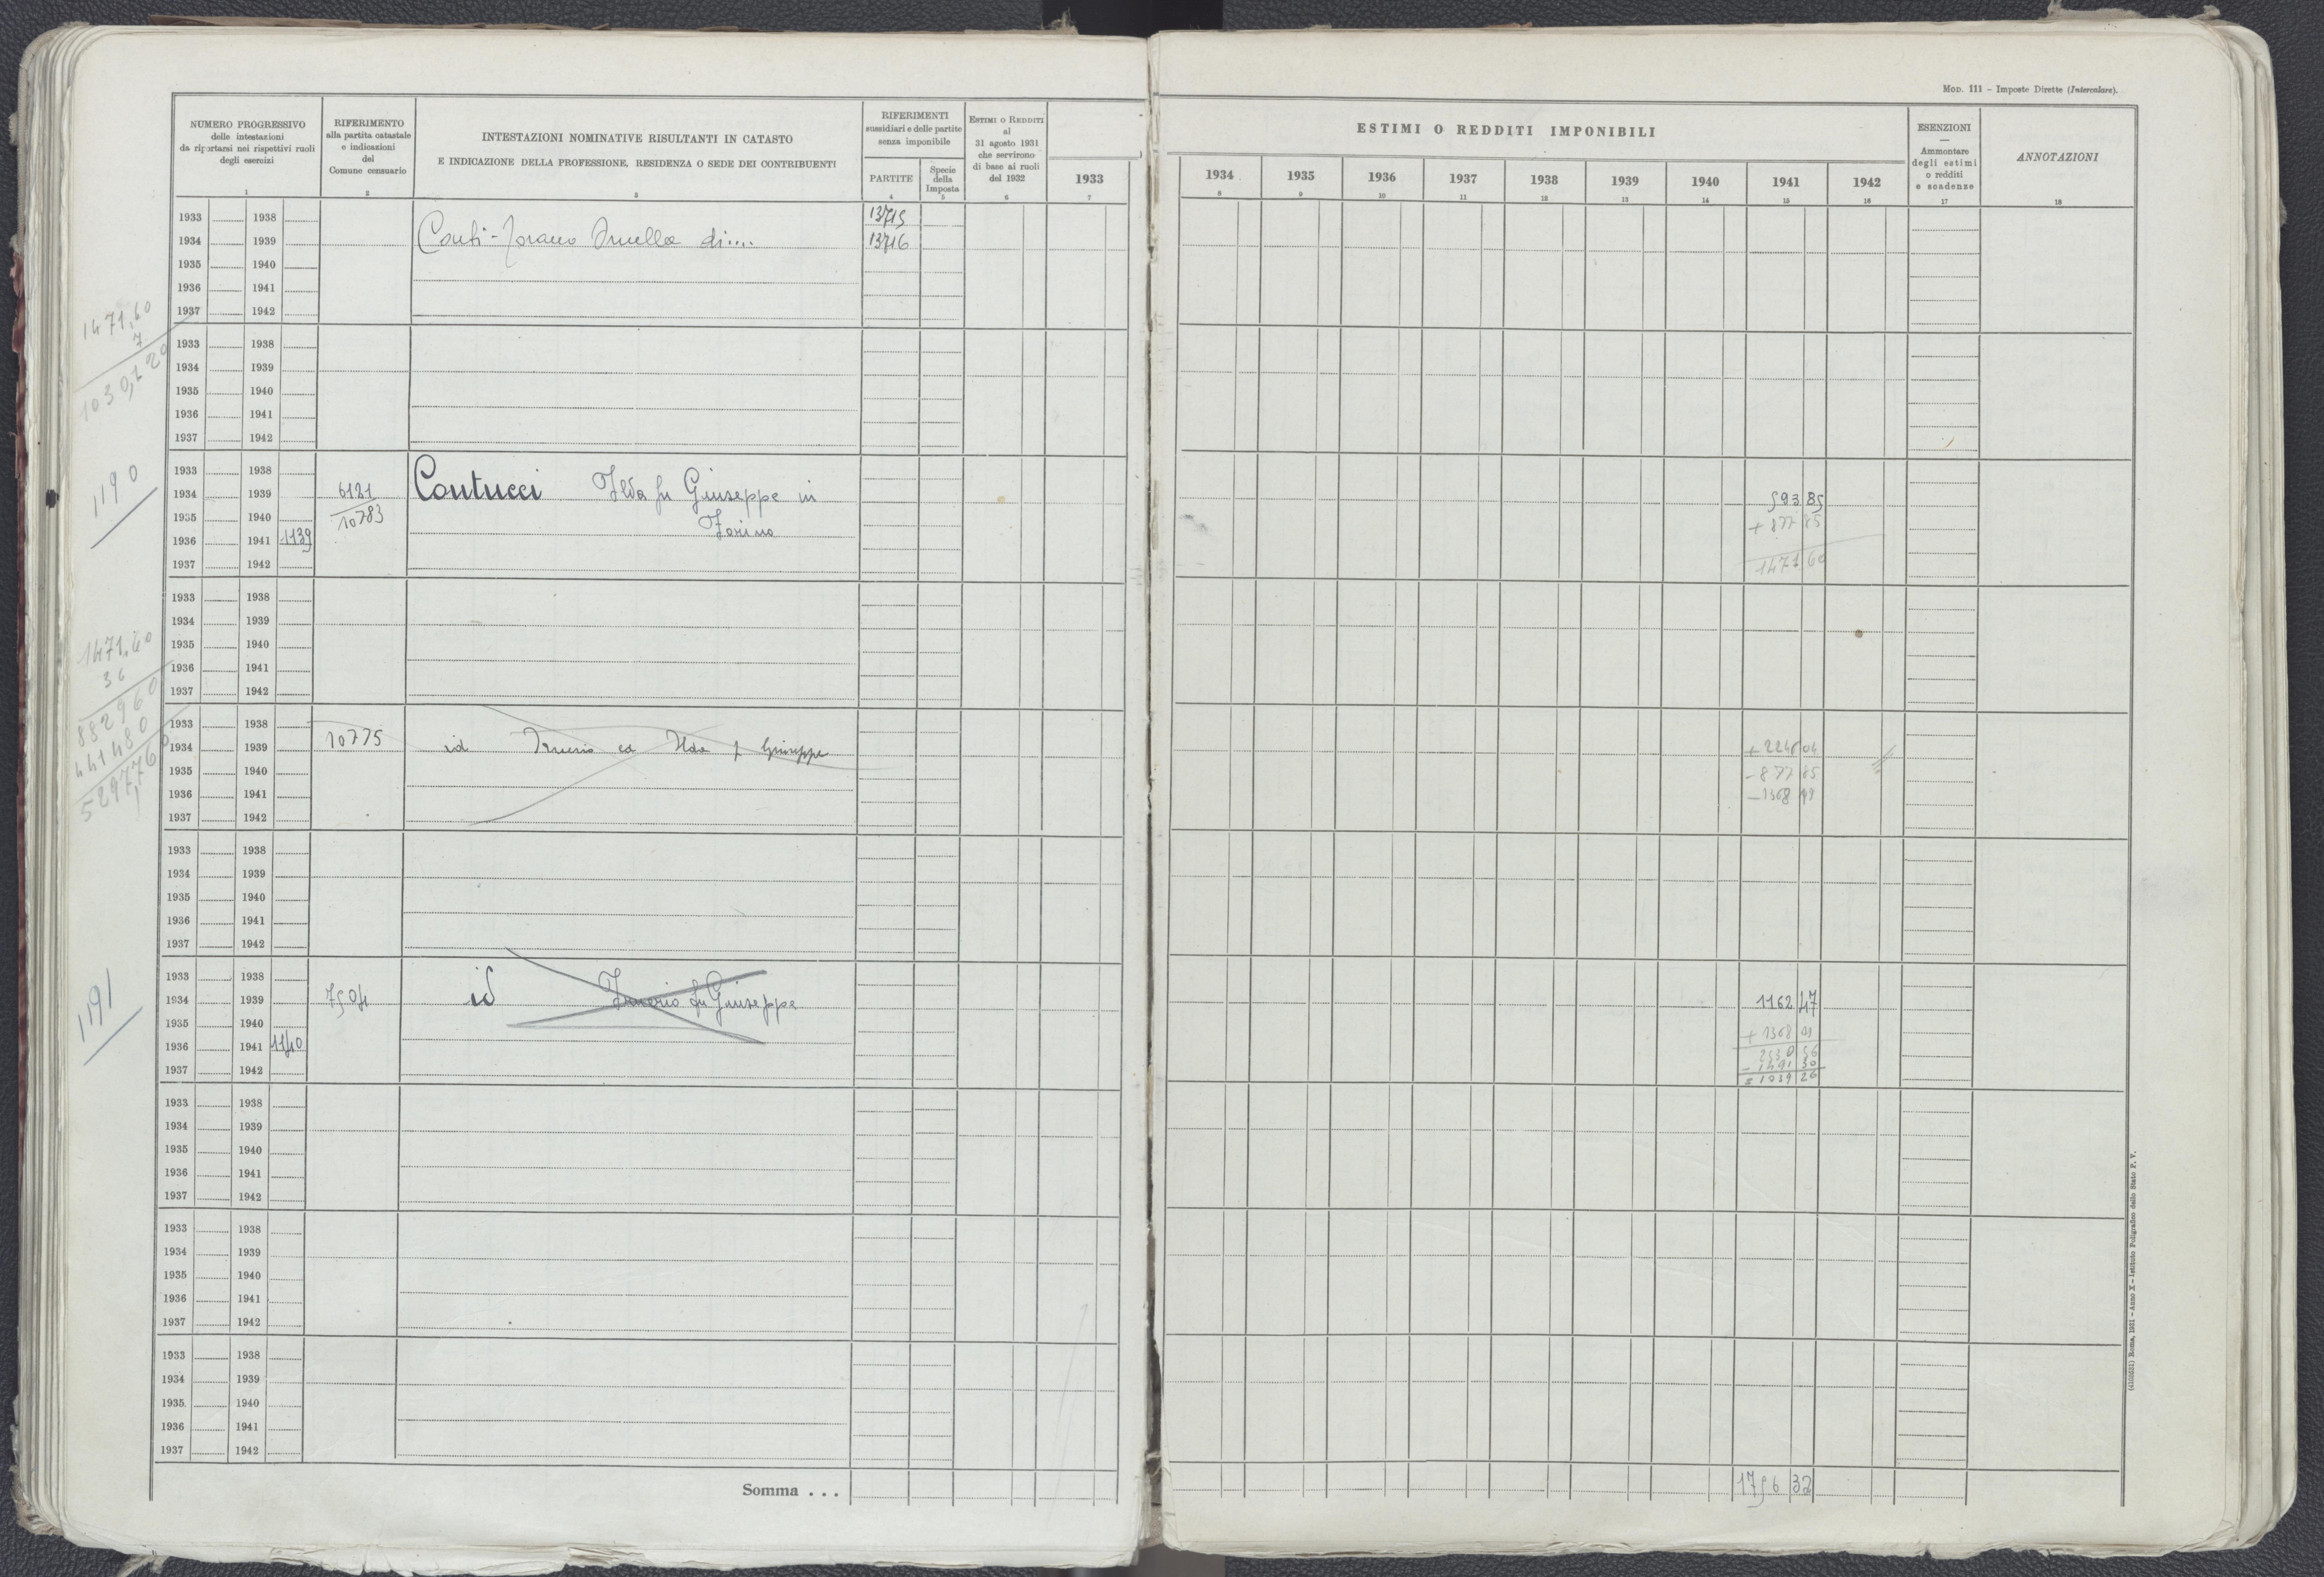 MOD. 111 – Imposte Dirette (Intercalare).
NUMERO PROGRESSIVO
delle intestazioni
da riportarsi nei rispettivi ruoli
degli esercizi
1
RIFERIMENTO
alla partita catastale
e indicazioni
del
Comune censuario
2
INTESTAZIONI NOMINATIVE RISULTANTI IN CATASTO
E INDICAZIONE DELLA PROFESSIONE, RESIDENZA O SEDE DEI CONTRIBUENTI
3
RIFERIMENTI
sussidiari e delle partite
senza imponibile
PARTITE
4
Specie
della
Imposta
5
ESTIMI O REDDITI
al
31 agosto 1931
che servirono
di base ai ruoli
del 1932
6
1933
7
ESTIMI O REDDITI IMPONIBILI
1934 1935 1936 1937 1938 1939 1940 1941 1942
8 9 10 11 12 13 14 15 16
ESENZIONI
—
Ammontare
degli estimi
o redditi
e scadenze
17
ANNOTAZIONI
18
1933 1938 13715
1934 1939 Conti- di.... 13716
1935 1940
1936 1941
1937 1942
1471,60
7
1030,120
1933 1938
1934 1939
1935 1940
1936 1941
1937 1942
1190
1933 1938
1934 1939 6121 Contucci Ilda fu Giuseppe in 593 85
1935 1940 10783 Torino + 877 85
1936 1941 1139
1937 1942 1471 60
1933 1938
1934 1939
1935 1940
1936 1941
1937 1942
1471,60
36
882960
441480
52977,60
1933 1938
1934 1939 10775 id ed Ilda f Giuseppe + 2246 04
1935 1940 – 877 85
1936 1941 – 1368
1937 1942
1933 1938
1934 1939
1935 1940
1936 1941
1937 1942
1191
1933 1938
1934 1939 7504 id fu Giuseppe 1162 47
1935 1940 + 1368 09
1936 1941 1140 2530 56
1937 1942 – 1491 30
= 1039 26
1933 1938
1934 1939
1935 1940
1936 1941
1937 1942
1933 1938
1934 1939
1935 1940
1936 1941
1937 1942
1933 1938
1934 1939
1935 1940
1936 1941
1937 1942
Somma . . . 1756 32
(4100551) Roma, 1931 – Anno X – Istituto Poligrafico dello Stato P. V.